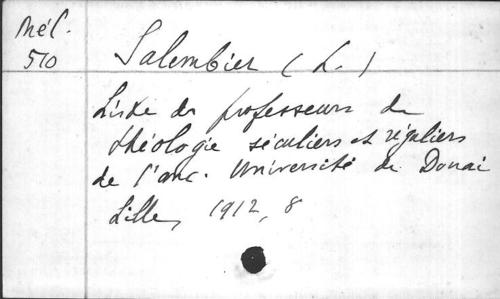 Mél.
510
Salembier (L.)
Liste des professeurs de
théologie séculiers et réguliers
de l'anc. Université de Douai
Lille, 1912, 8